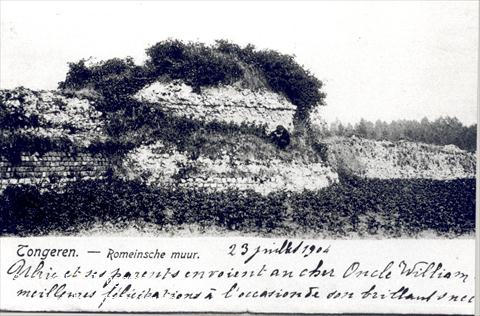 Tongeren. — Romeinsche muur. 23 juillet 1904
et ses parents envoient au cher Oncle William
meilleures félicitations à l'occasion de son brillant succ